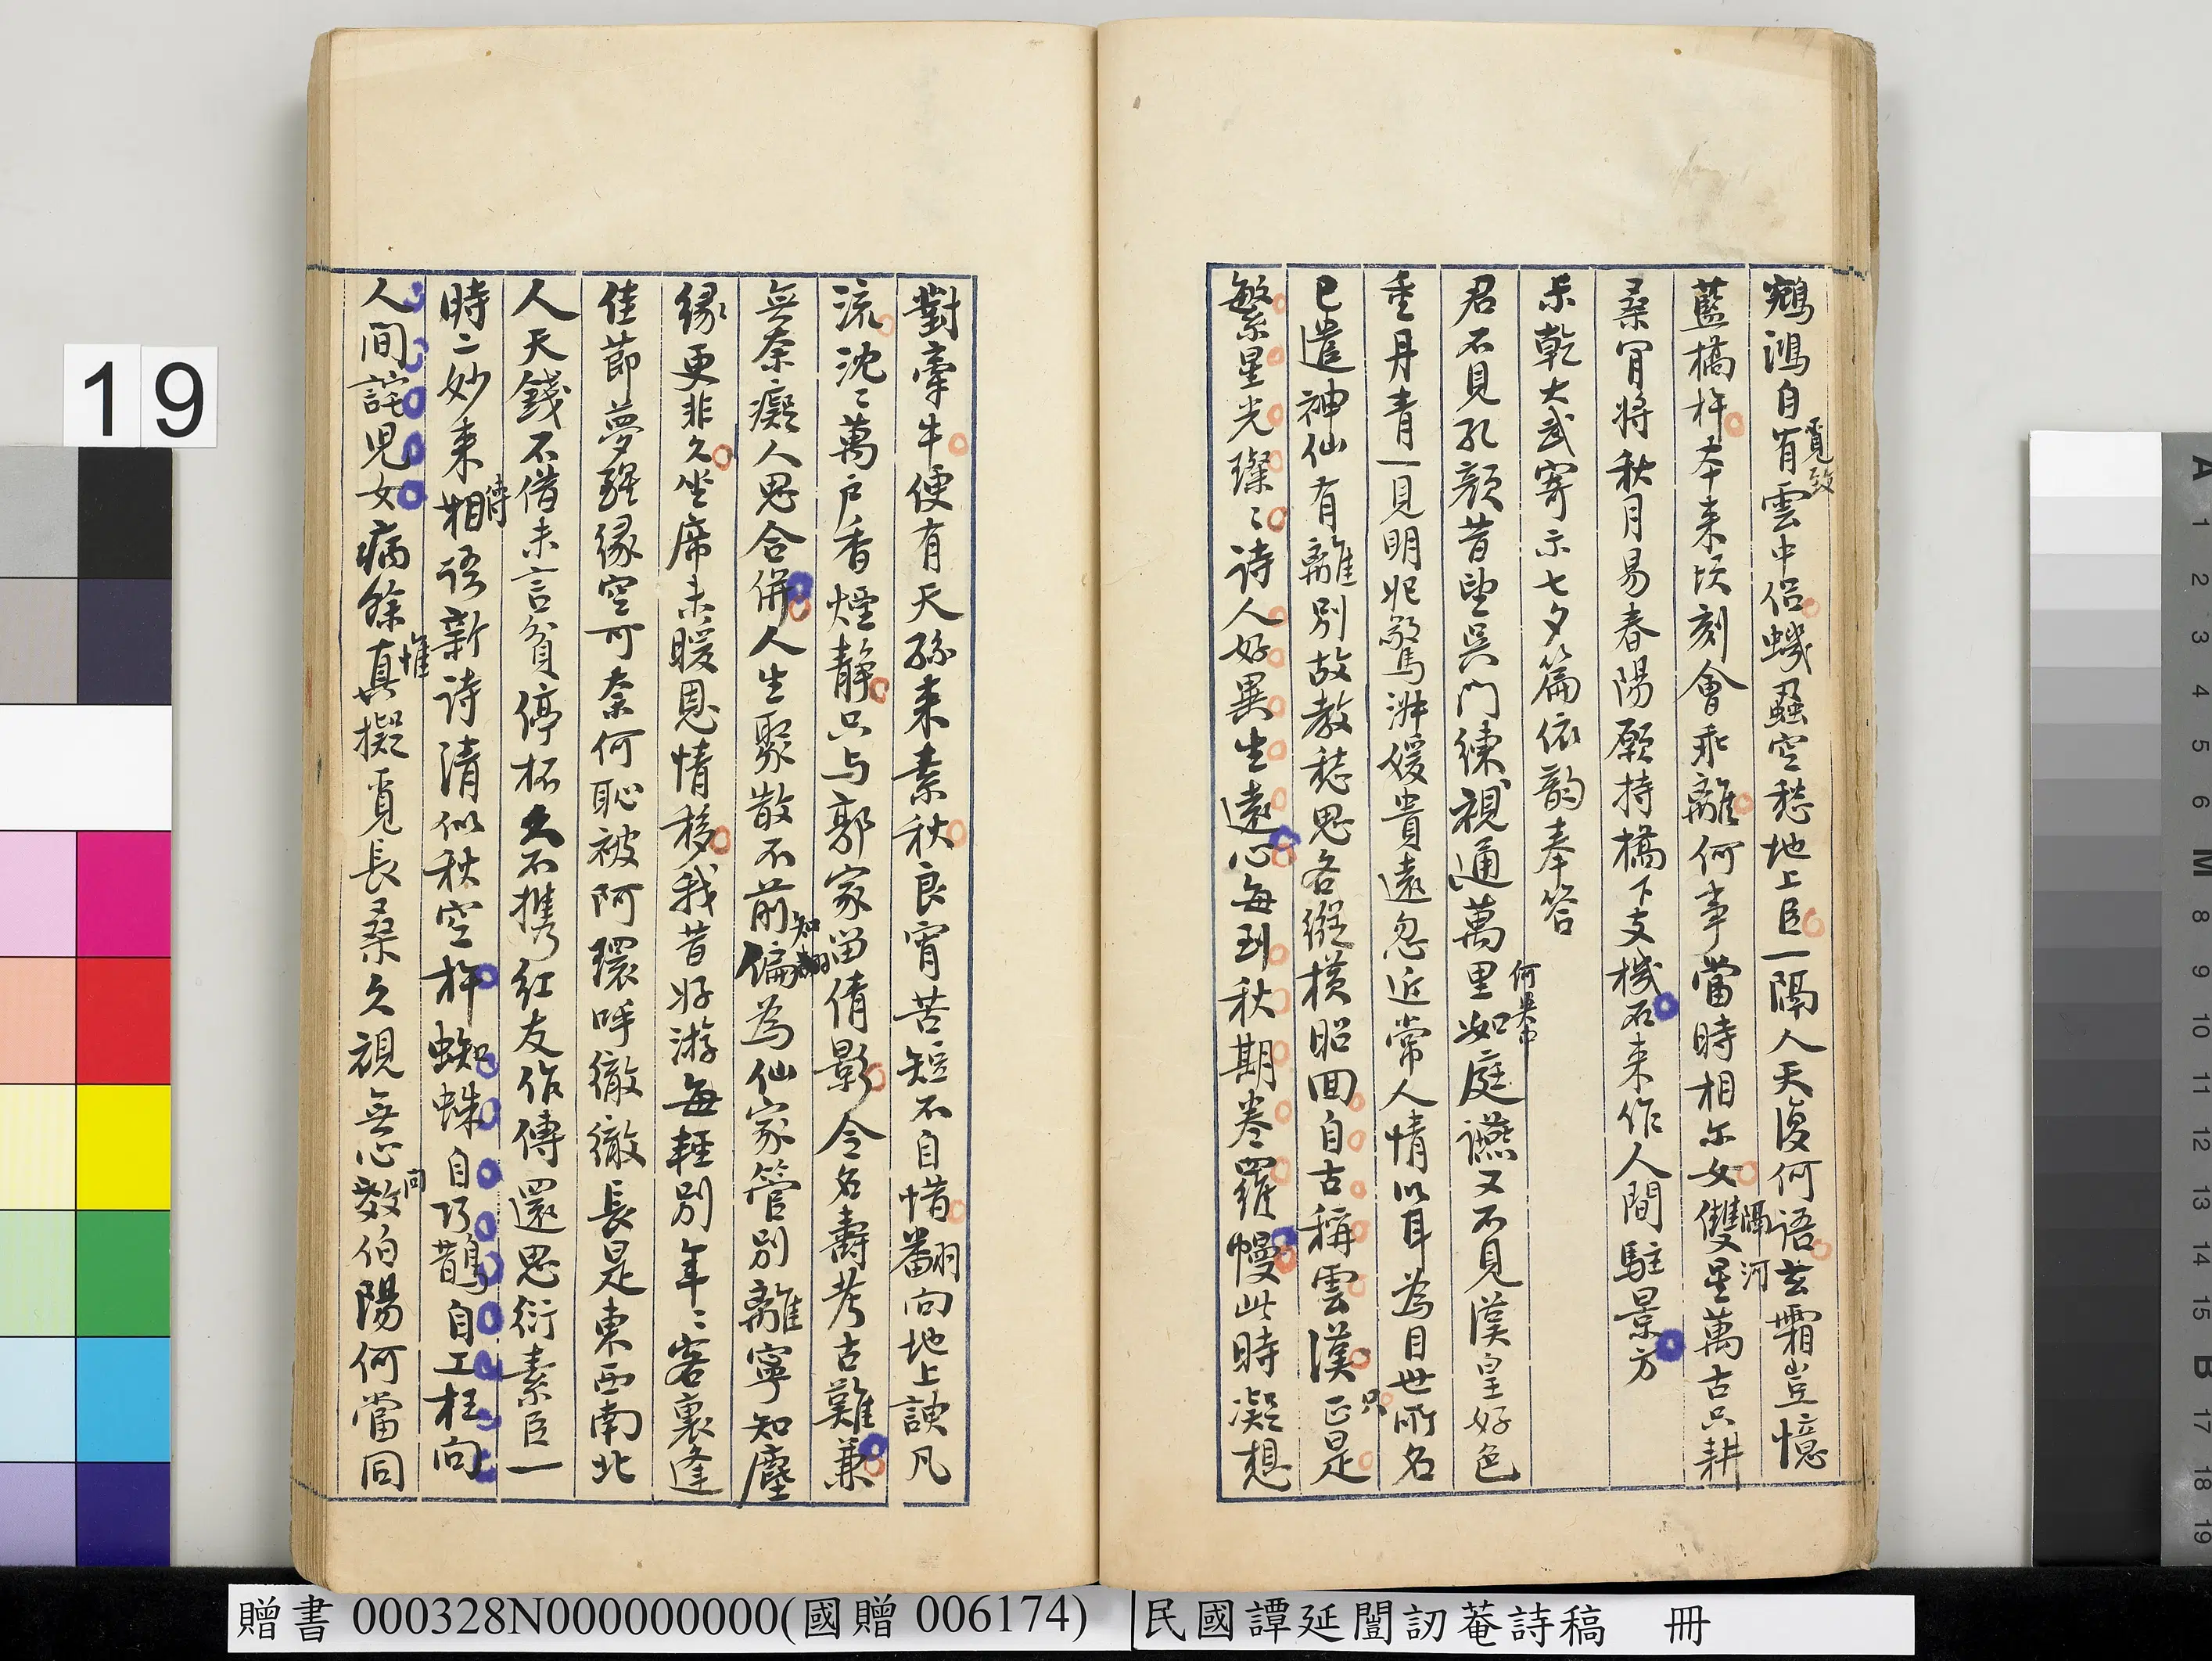 鵷鴻自有雲中侶蟣蝨空愁地上臣一隔人天復何語玄霜豈憶
覓致
藍橋杵本来頃刻會乖離何事當時相尔女雙星萬古只耕
隔河
桑胃將秋月易春陽願持橋下支機石来作人間駐景方
乐乾大武寄示七夕篇依韵奉答
君不見孔顏昔望吳門練視通萬里如庭讌又不見漢皇好色
何異
重丹青一見明妃驚淋媛貴遠忽近常人情以耳為目世所名
已遣神仙有離別故教愁思各縱橫昭回自古稱雲漢正是
只
繁星光璨〻詩人好異生遠心每到秋期卷羅幔此時凝想
對牽牛便有天孫来素秋良宵苦短不自惜翻向地上諛凡
流沈〻萬户香煙静只与郭家留倩影令名壽考古難兼
無奈癡人思合併人生聚散不前偏為仙家管別離寧知塵
知翻
緣更非久坐席未暖恩情移我昔好游每輕別年〻客裏逢
佳節夢醒緣空可奈何恥被阿環呼徹徹長是東西南北
人天錢不借未言貧停杯久不攜紅友作傳還思衍素臣一
時二妙来相語新詩清似秋空杵蜘蛛自巧鵲自工枉向
待
人間詫児女病餘真擬覓長桑久視無心教伯陽何當同
惟
問
19
贈書 000328N000000000(國贈 006174)
民國譚延闓訒菴詩稿 冊
A 1 2 3 4 5 6 M 8 9 10 11 12 13 14 15 B 17 18 19